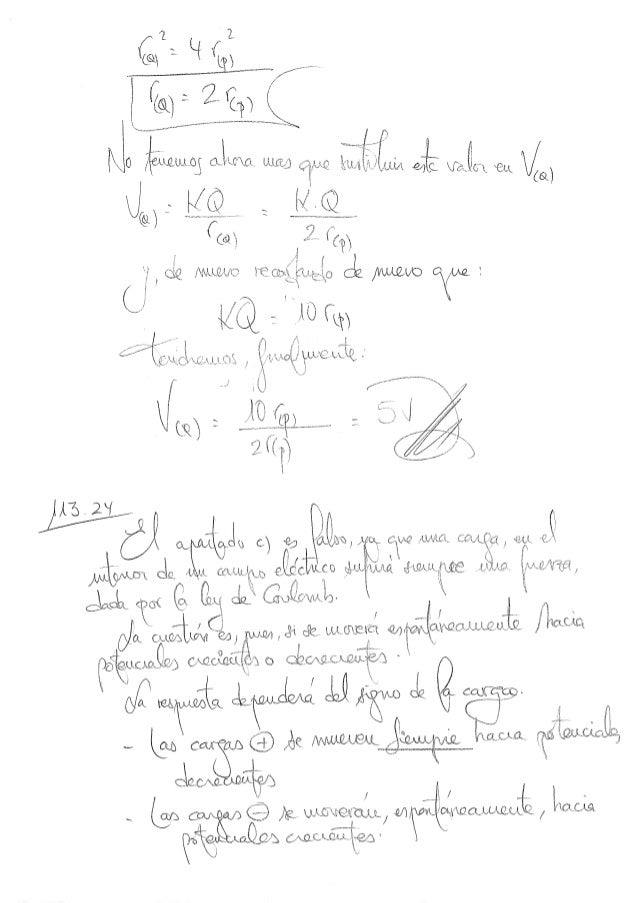 r(Q)² = 4 r(p)²
r(Q) = 2 r(p)
No tenemos ahora mas que sustituir este valor en V(Q)
V(Q) = KQ / r(Q) = K.Q / 2 r(p)
y, de nuevo recordando de nuevo que:
KQ = 10 r(p)
tendremos, finalmente:
V(Q) = 10 r(p) / 2 r(p) = 5V
113.24
El apartado c) es falso, ya que una carga, en el
interior de un campo eléctrico sufrirá siempre una fuerza,
dada por la ley de Coulomb.
La cuestión es, pues, si se moverá espontáneamente hacia
potenciales crecientes o decrecientes.
La respuesta dependerá del signo de la carga.
- Las cargas ⊕ se mueven siempre hacia potenciales
decrecientes
- Las cargas ⊖ se moverán, espontáneamente, hacia
potenciales crecientes.